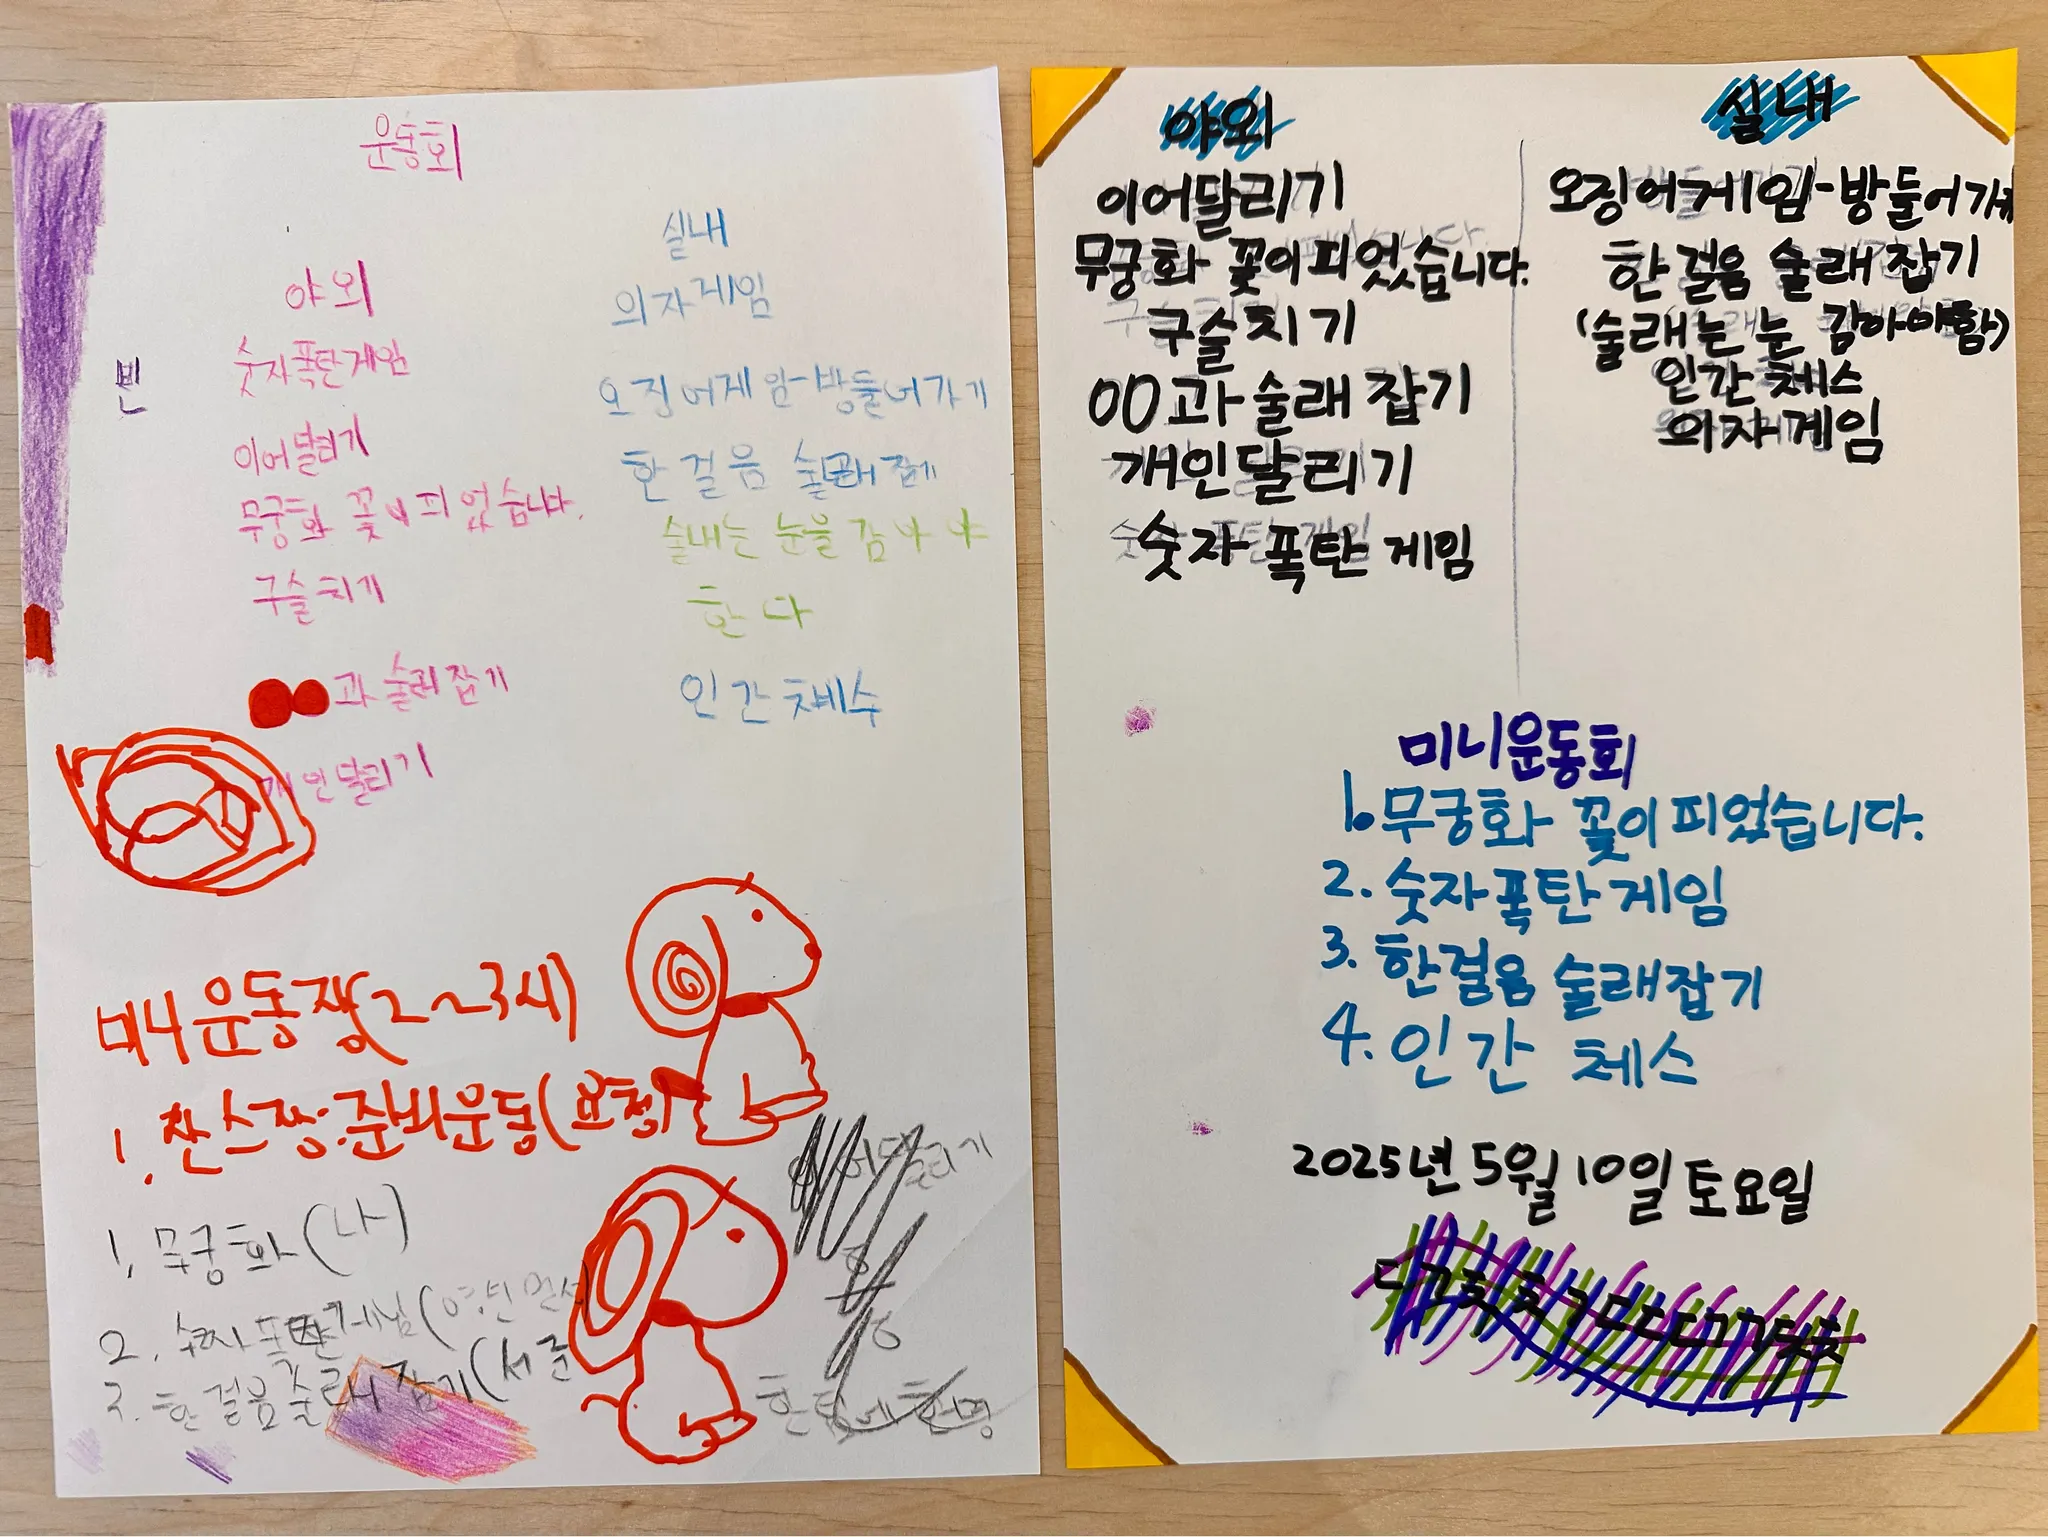 운동회
야외
숫자폭탄게임
이어달리기
무궁화 꽃이피었습니다.
구슬치기
과 술래잡기
개인달리기
빈
실내
의자게임
오징어게임-방들어가기
한걸음 술래잡기
술내는 눈을 감아야
한다
인간체수
미니운동장(2~3시)
1. 찬스장:준비운동(요정)
1. 무궁화(나)
2. 숫자폭탄게님(
3. 한걸음술래잡기(서준
야외
이어달리기
무궁화 꽃이피었습니다.
구슬치기
OO과 술래잡기
개인달리기
숫자 폭탄 게임
실내
오징어게임-방들어가기
한걸음 술래잡기
(술래는 눈 감아야함)
인간 체스
의자게임
미니운동회
1. 무궁화 꽃이피었습니다.
2. 숫자폭탄게임
3. 한걸음 술래잡기
4. 인간 체스
2025년 5월 10일 토요일